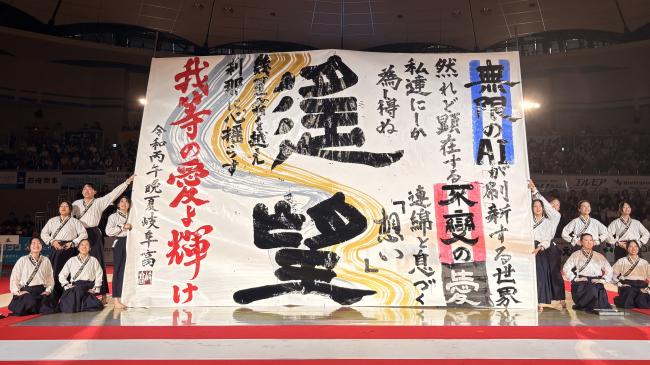 無限のAIが刷新する世界
然れど顕在する不變の愛
私達にしか
為し得ぬ
連綿と息づく
「想い」
望
を越え
刹那に心
我等の愛よ輝け
令和丙午晩夏岐阜高